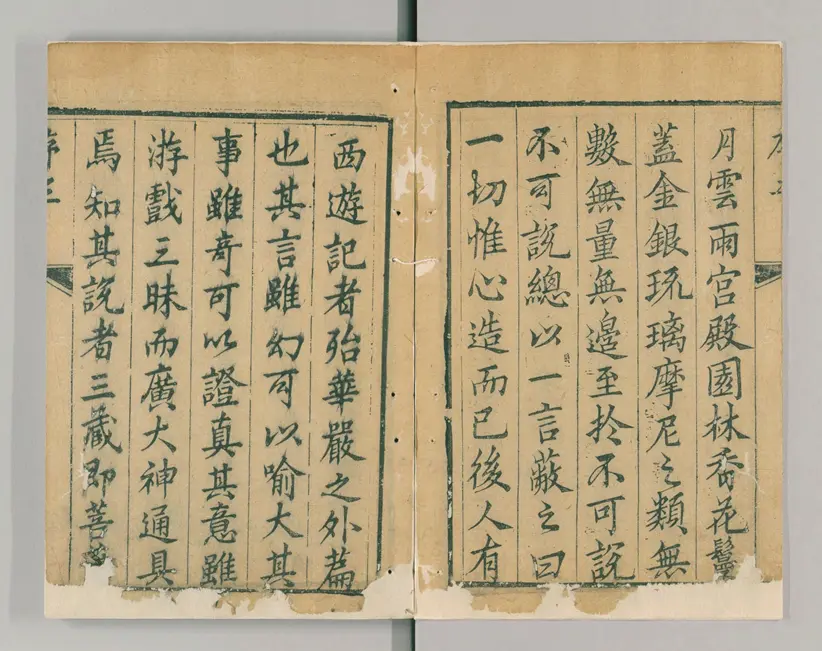 月雲雨宫殿園林香花鬘
蓋金銀琉璃摩尼之類無
數無量無邊至扵不可說
不可說總以一言蔽之曰
一切惟心造而已後人有
西遊記者殆華嚴之外篇
也其言雖幻可以喻大其
事雖奇可以證真其意雖
游戲三昧而廣大神通具
焉知其說者三藏即菩